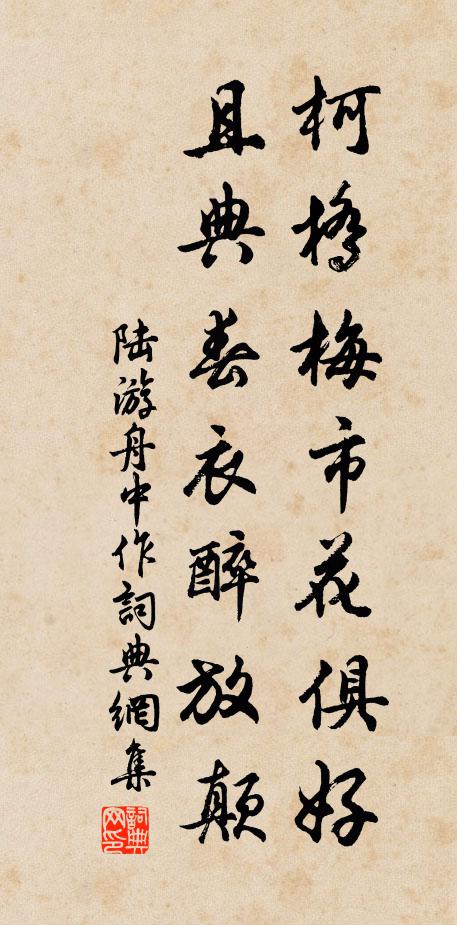 柯橋梅市花俱好
且典春衣醉放顛
陆游舟中作詞典網集
詞典网印